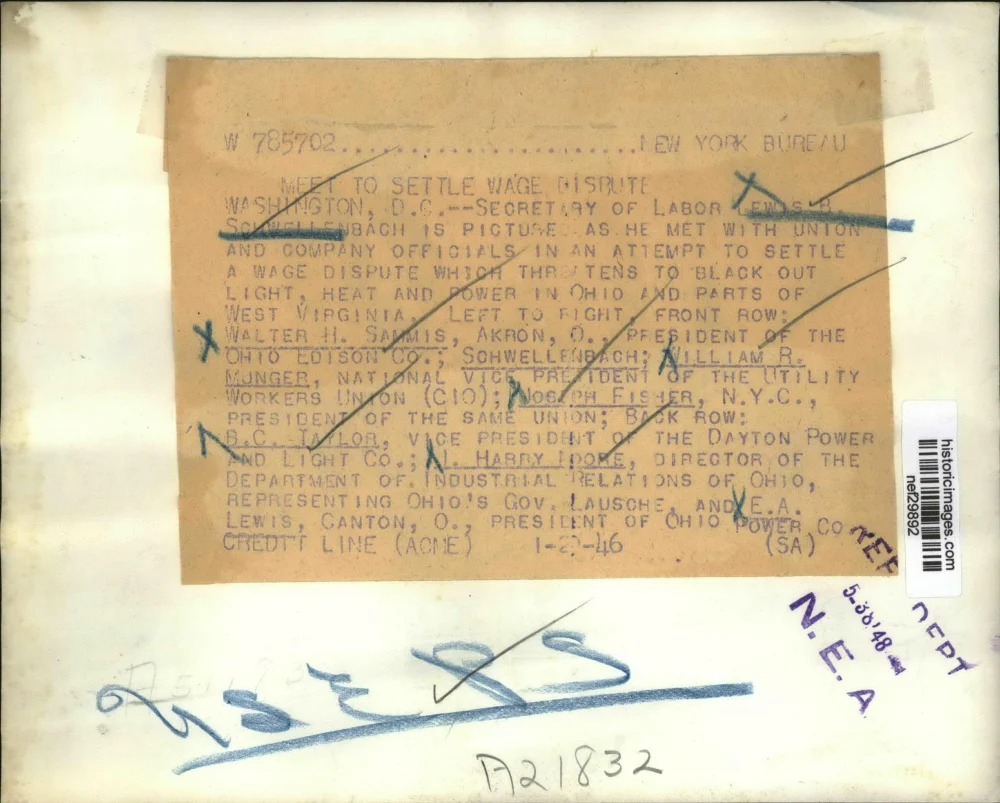 W 785702..........................NEW YORK BUREAU
MEET TO SETTLE WAGE DISPUTE
WASHINGTON, D.C.--SECRETARY OF LABOR LEWIS B.
SCHWELLENBACH IS PICTURED AS HE MET WITH UNION
AND COMPANY OFFICIALS IN AN ATTEMPT TO SETTLE
A WAGE DISPUTE WHICH THREATENS TO BLACK OUT
LIGHT, HEAT AND POWER IN OHIO AND PARTS OF
WEST VIRGINIA. LEFT TO RIGHT, FRONT ROW:
WALTER H. SAMMIS, AKRON, O., PRESIDENT OF THE
OHIO EDISON CO.; SCHWELLENBACH; WILLIAM R.
MUNGER, NATIONAL VICE PRESIDENT OF THE UTILITY
WORKERS UNION (CIO); JOSEPH FISHER, N.Y.C.,
PRESIDENT OF THE SAME UNION; BACK ROW:
TAYLOR, VICE PRESIDENT OF THE DAYTON POWER
AND LIGHT CO.; HARRY DIRECTOR OF THE
DEPARTMENT OF INDUSTRIAL RELATIONS OF OHIO,
REPRESENTING OHIO'S GOV. LAUSCHE, AND E.A.
LEWIS, CANTON, O., PRESIDENT OF OHIO POWER CO
CREDIT LINE (ACME) (SA)
historicimages.com
nef29892
REF DEPT
N. E. A
A21832